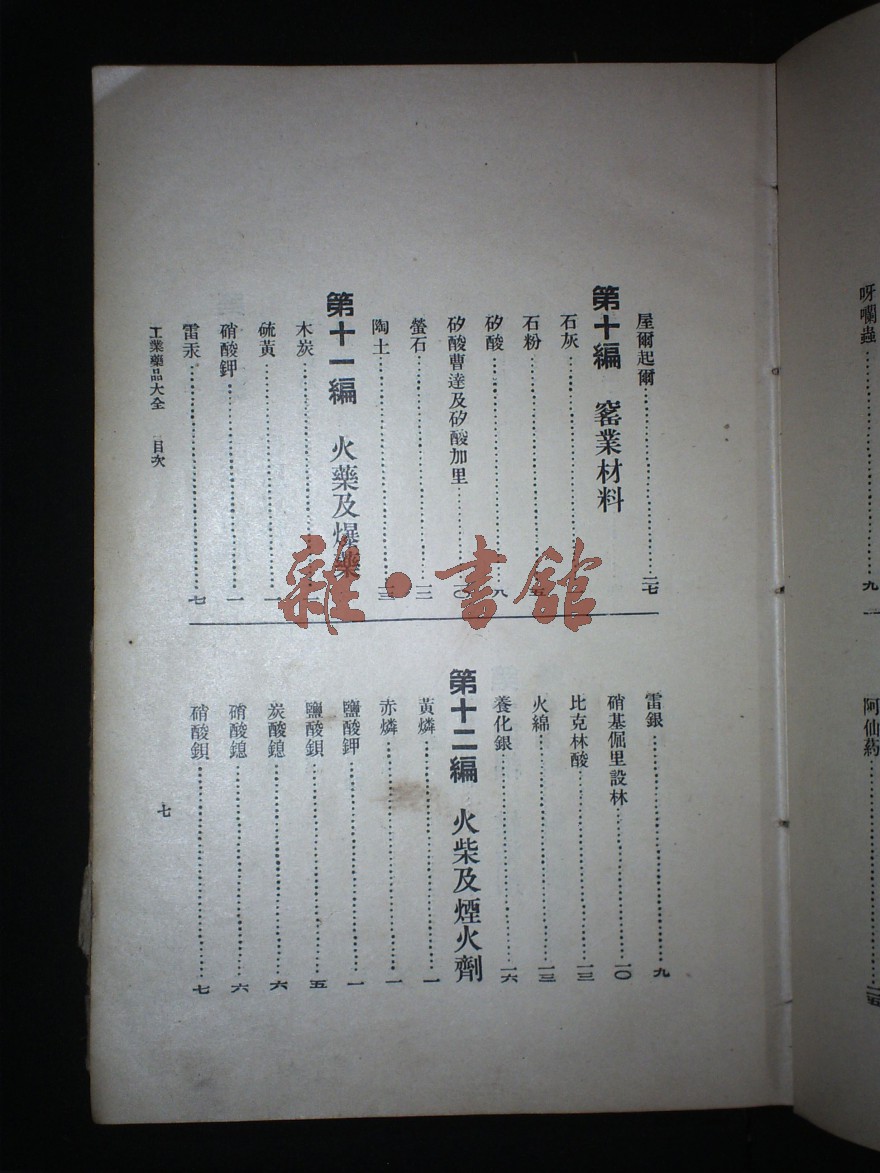 呀囒蟲……九
阿仙葯……二五
屋爾起爾……二七
第十編 窰業材料
石灰……
石粉……五
矽酸……八
矽酸曹達及矽酸加里……一〇
螢石……一二
陶土……一三
第十一編 火藥及爆藥
木炭……一
硫黃……一
硝酸鉀……一
雷汞……七
雷銀……九
硝基倔里設林……一〇
比克林酸……一三
火綿……一三
養化銀……一六
第十二編 火柴及煙火劑
黃燐……一
赤燐……一
鹽酸鉀……一
鹽酸鋇……五
炭酸鎴……六
硝酸鎴……六
硝酸鋇……七
工業藥品大全 目次
七
雜·書館